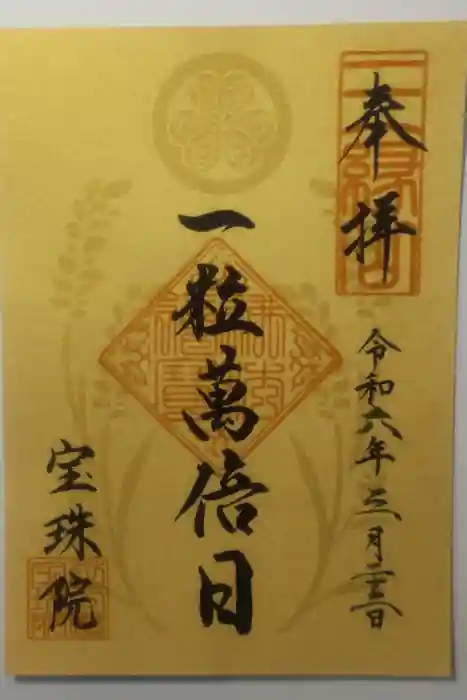 奉拝
三縁山
令和六年三月二十二日
一粒萬倍日
宝珠院